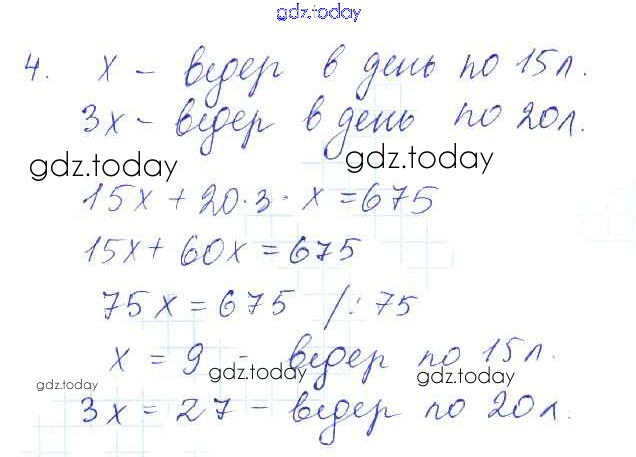 gdz.today
4. x – ведер в день по 15л.
3x – ведер в день по 20л.
gdz.today gdz.today
15x + 20·3·x = 675
15x + 60x = 675
75x = 675 /:75
x = 9 – ведер по 15л.
gdz.today gdz.today gdz.today
3x = 27 – ведер по 20л.